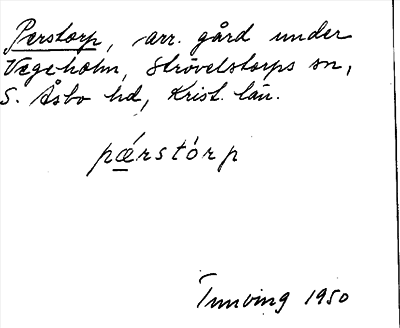 Perstorp, arr. gård under
Vegeholm, Strövelstorps sn,
S. Åsbo hd, Krist. län.
pǽrstórp
Tunving 1950